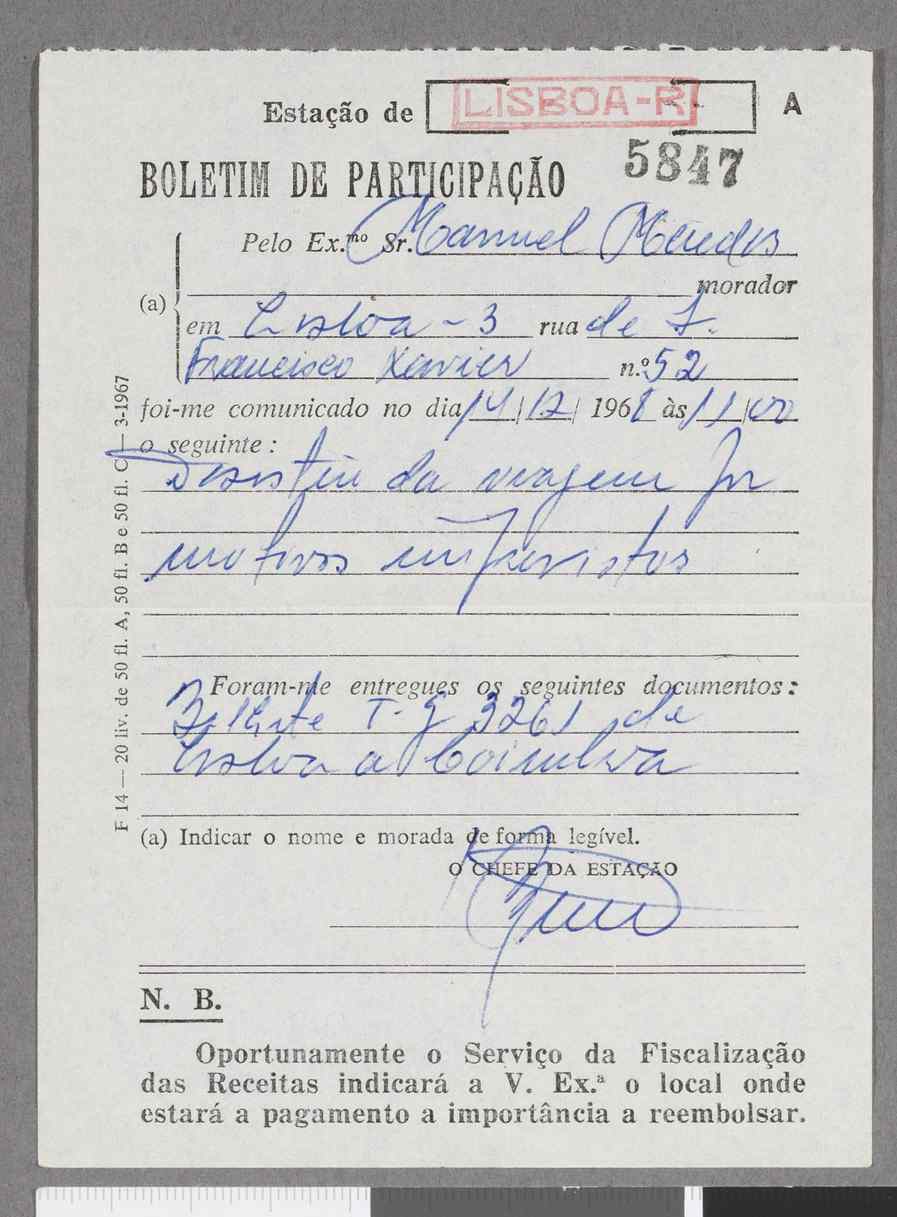 Estação de LISBOA-R A
BOLETIM DE PARTICIPAÇÃO 5847
Pelo Ex.mo Sr. Manuel Mendes
morador
(a)
em Lisboa - 3 rua de S.
Francisco Xavier n.º 52
foi-me comunicado no dia 14/12/1968 às 11/00
o seguinte:
Desistiu da viagem por
motivos imprevistos
Foram-me entregues os seguintes documentos:
Bilhete T-G 3261 de
Lisboa a Coimbra
(a) Indicar o nome e morada de forma legível.
O CHEFE DA ESTAÇÃO
N. B.
Oportunamente o Serviço da Fiscalização
das Receitas indicará a V. Ex.ª o local onde
estará a pagamento a importância a reembolsar.
F 14 — 20 liv. de 50 fl. A, 50 fl. B e 50 fl. C — 3-1967